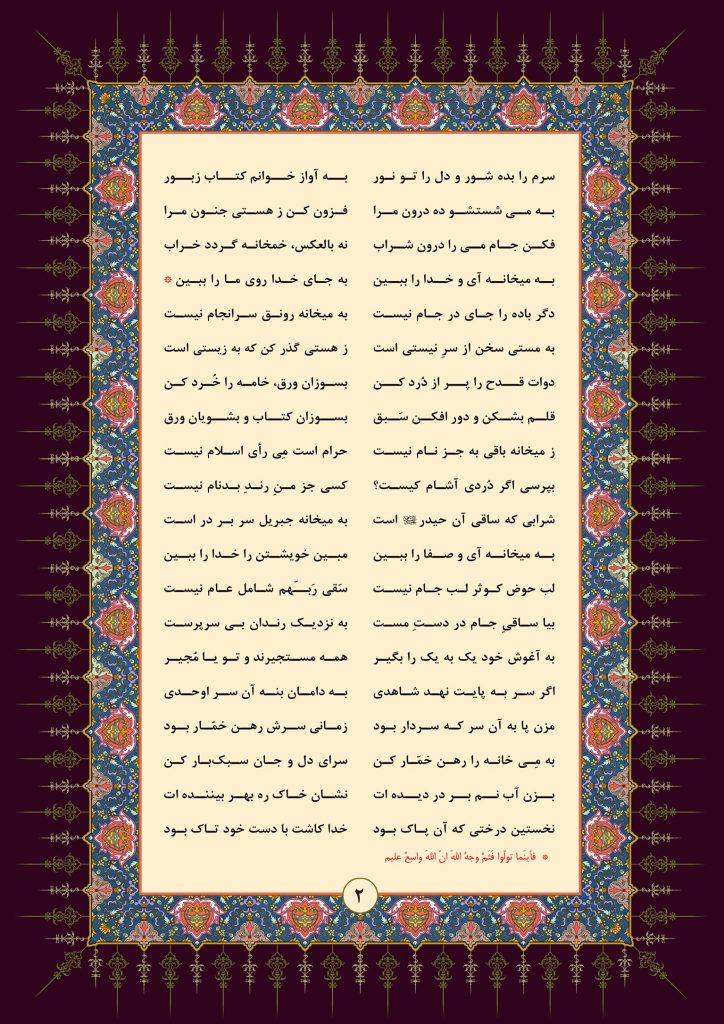 سرم را بده شور و دل را تو نور به آواز خوانم کتاب زبور
به می شستشو ده درون مرا فزون کن ز هستی جنون مرا
فکن جام می را درون شراب نه بالعکس، خمخانه گردد خراب
به میخانه آی و خدا را ببین به جای خدا روی ما را ببین *
دگر باده را جای در جام نیست به میخانه رونق سرانجام نیست
به مستی سخن از سرِ نیستی است ز هستی گذر کن که به زیستی است
دوات قدح را پر از دُرد کن بسوزان ورق، خامه را خُرد کن
قلم بشکن و دور افکن سَبق بسوزان کتاب و بشویان ورق
ز میخانه باقی به جز نام نیست حرام است مِی رأی اسلام نیست
بپرسی اگر دُردی آشام کیست؟ کسی جز منِ رندِ بدنام نیست
شرابی که ساقی آن حیدر است به میخانه جبریل سر بر در است
به میخانه آی و صفا را ببین مبین خویشتن را خدا را ببین
لب حوض کوثر لب جام نیست سَقی رَبّهم شامل عام نیست
بیا ساقیِ جام در دستِ مست به نزدیک رندان بی سرپرست
به آغوش خود یک به یک را بگیر همه مستجیرند و تو یا مُجیر
اگر سر به پایت نهد شاهدی به دامان بنه آن سر اوحدی
مزن پا به آن سر که سردار بود زمانی سرش رهن خمّار بود
به مِی خانه را رهن خمّار کن سرای دل و جان سبک‌بار کن
بزن آب نم بر در دیده ات نشان خاک ره بهر بیننده ات
نخستین درختی که آن پاک بود خدا کاشت با دست خود تاک بود
* فأینَما تولّوا فَثَمَّ وجهُ اللهَ انّ اللهَ واسِعٌ علیم
۲